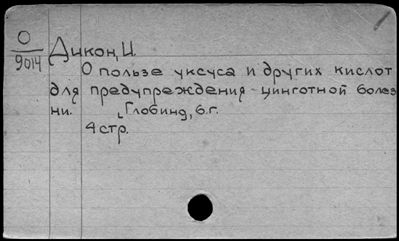 О
9014
Дикон, И.
О пользе уксуса и других кислот
для предупреждения цинготной болез
ни. Глобинд, б.г.
4 стр.